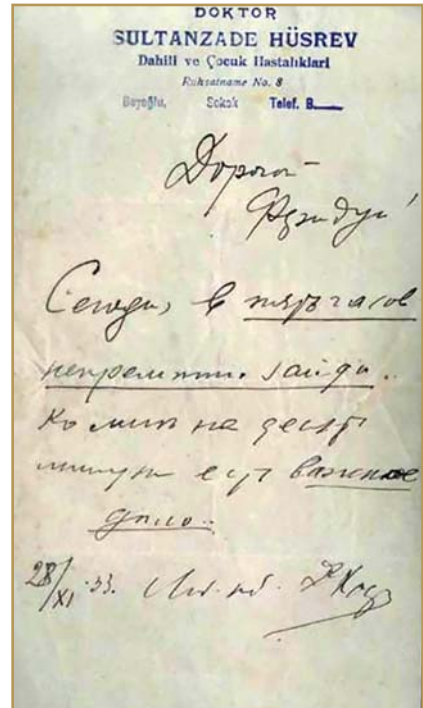 DOKTOR
SULTANZADE HÜSREV
Dahili ve Çocuk Hastalıklari
Ruhsatname No. 8
Beyoğlu, Sokak Telef. B
Дорогой
Феридун!
Сегодн, в пять часов
непременно зайди
ко мнѣ на десять
минут есть важное
дѣло..
28/XI .33.